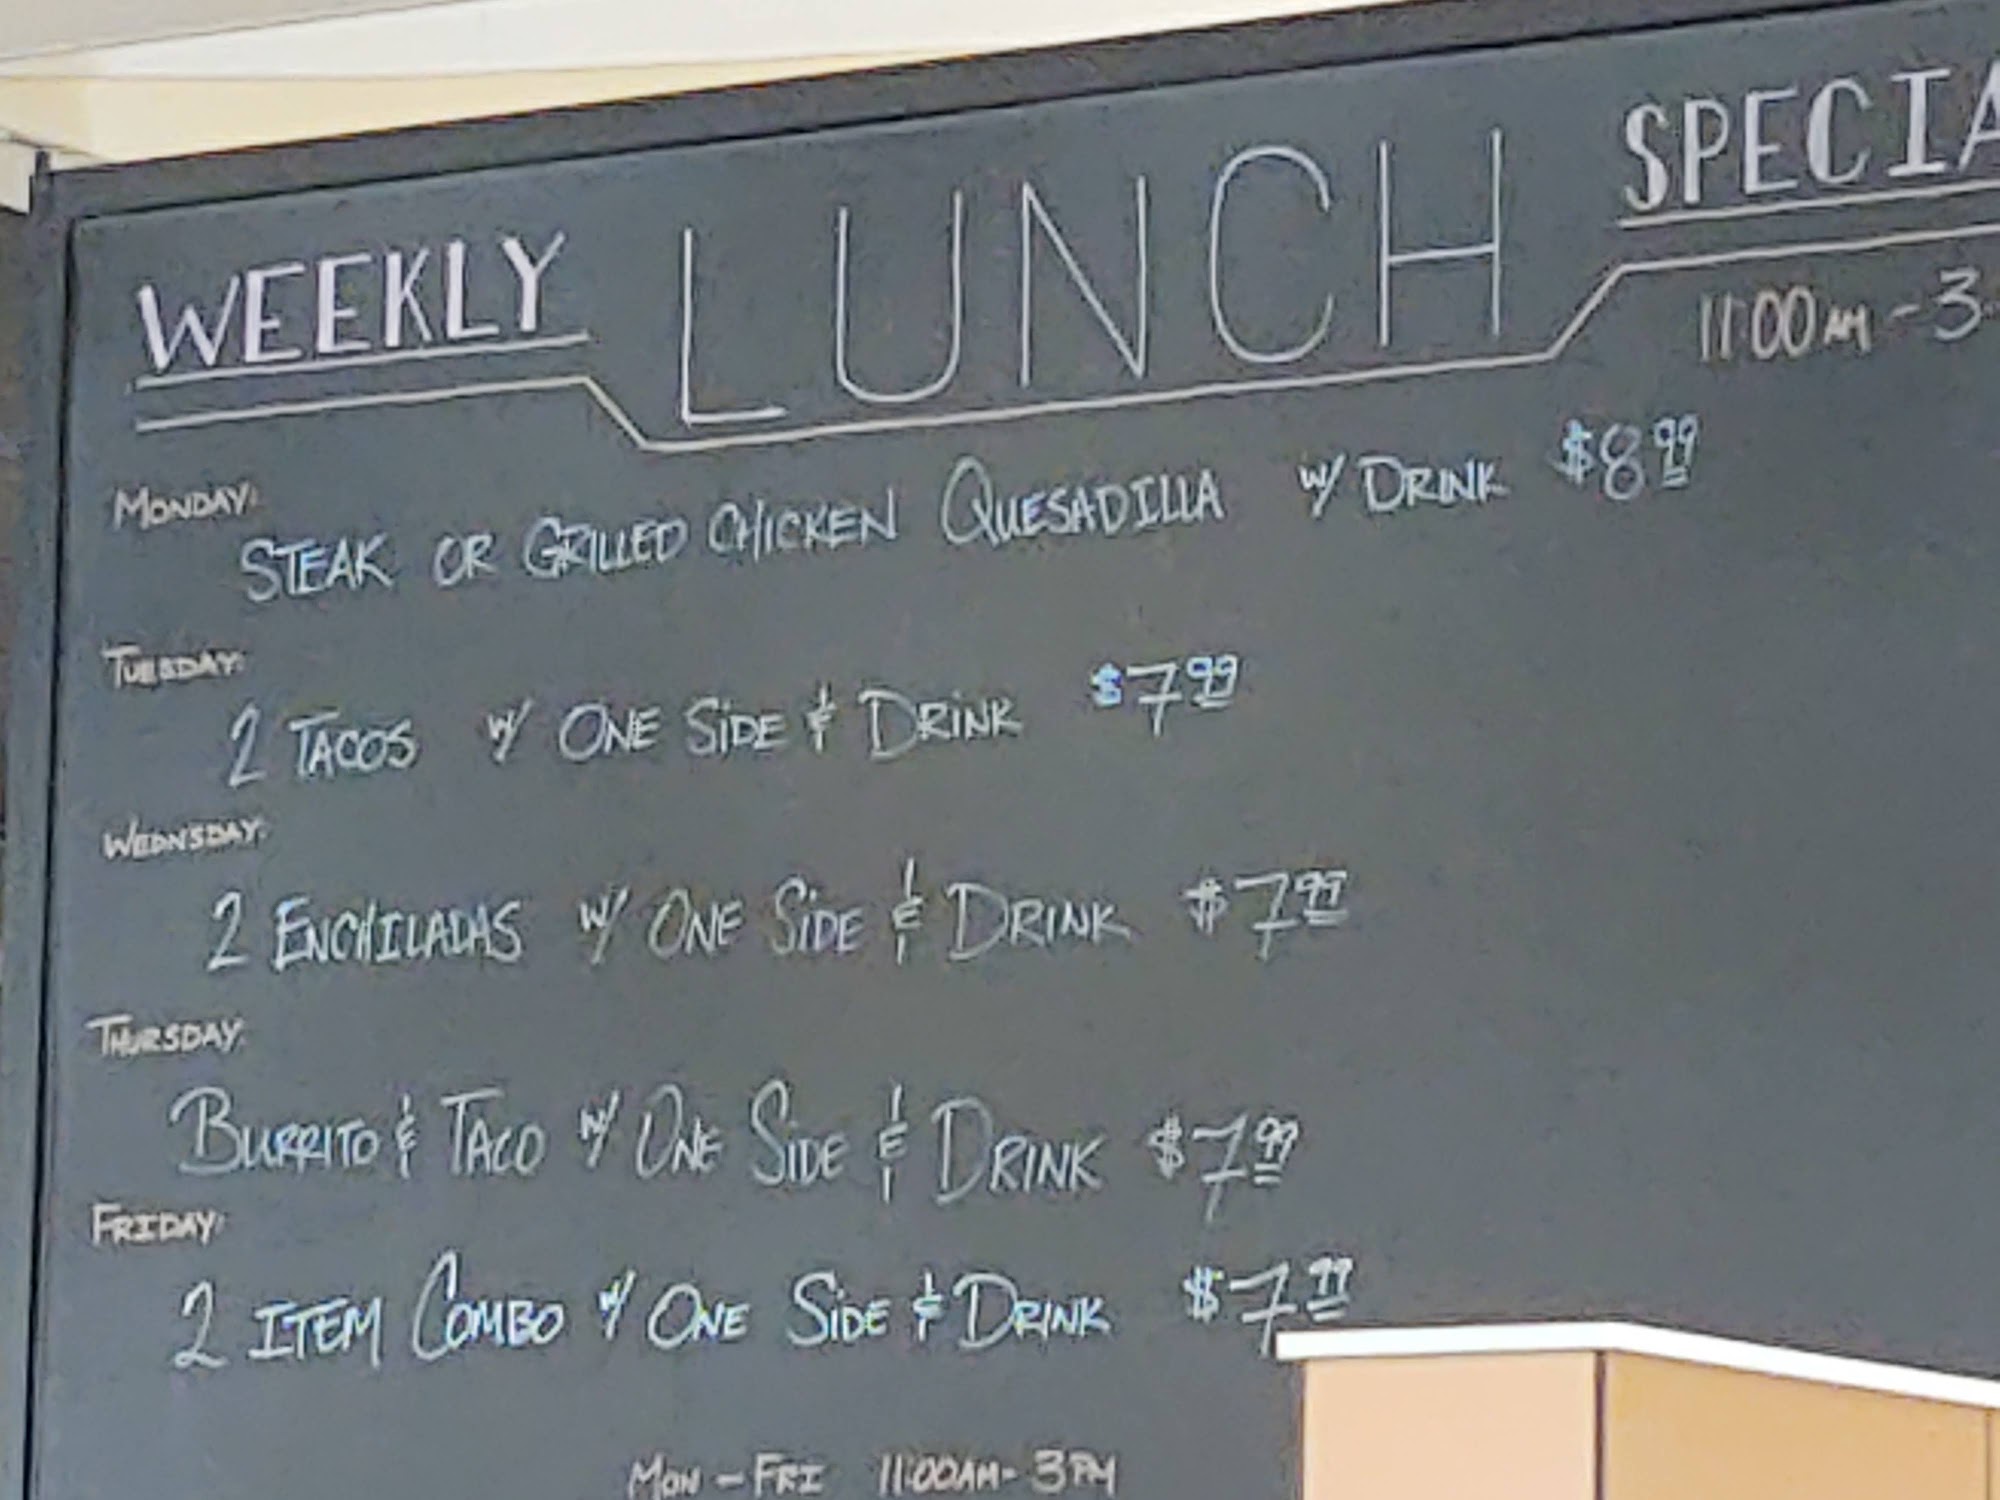 WEEKLY LUNCH SPECIA
11:00AM - 3
MONDAY:
STEAK OR GRILLED CHICKEN QUESADILLA W/ DRINK $8.99
TUESDAY:
2 TACOS W/ ONE SIDE & DRINK $7.99
WEDNSDAY:
2 ENCHILADAS W/ ONE SIDE & DRINK $7.99
THURSDAY:
BURRITO & TACO W/ ONE SIDE & DRINK $7.99
FRIDAY:
2 ITEM COMBO W/ ONE SIDE & DRINK $7.99
MON - FRI 11:00AM - 3PM